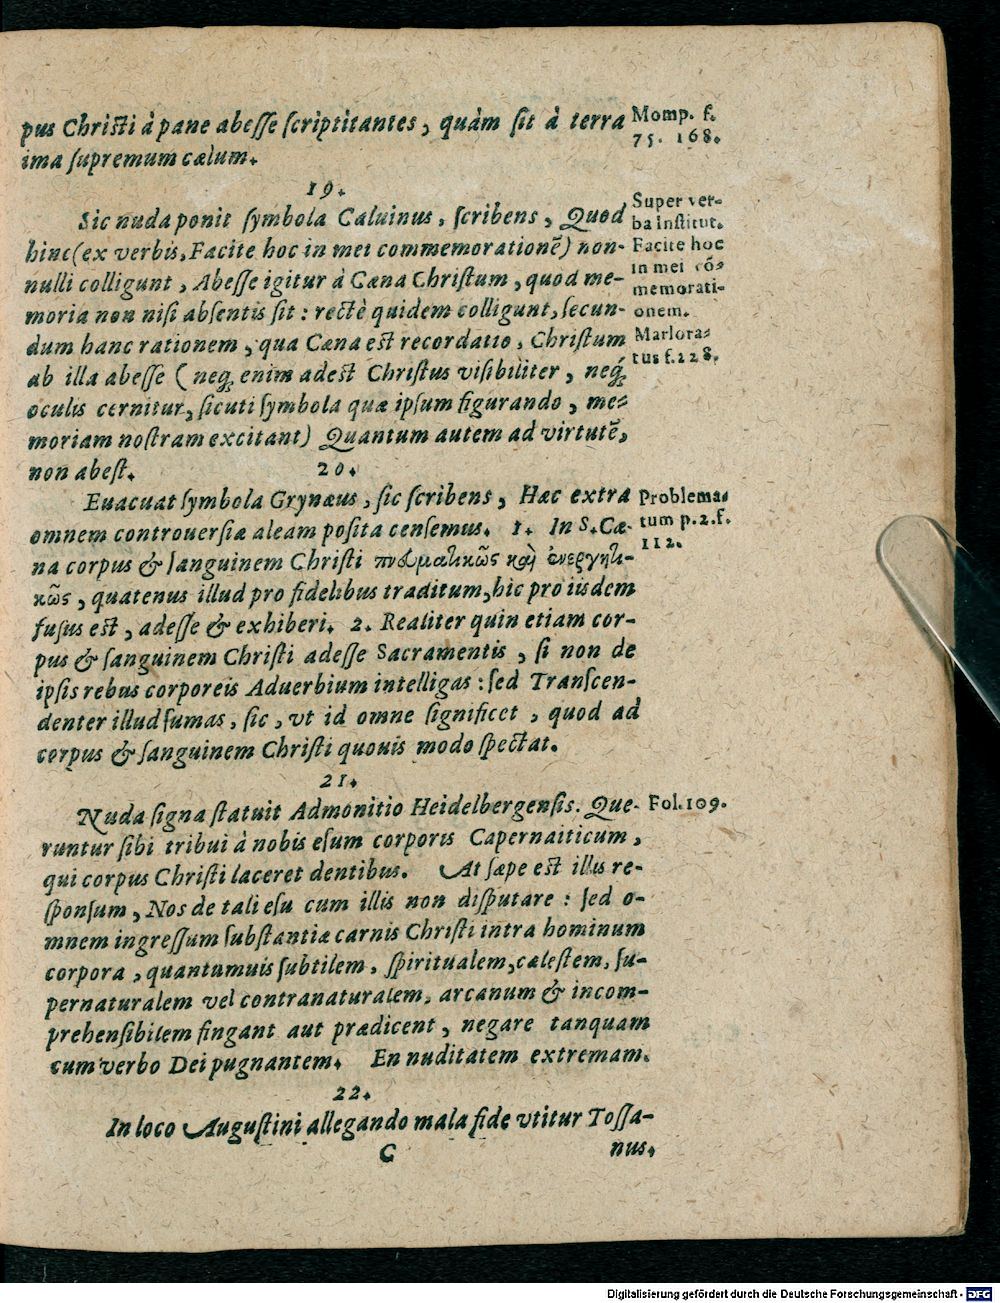 pus Christi à pane abesse scriptitantes, quàm sit à terra
ima supremum cælum.
Momp. f.
75. 168.
19.
Sic nuda ponit symbola Caluinus, scribens, Quod
hinc (ex verbis, Facite hoc in mei commemorationẽ) non-
nulli colligunt, Abesse igitur à Cœna Christum, quod me-
moria non nisi absentis sit: rectè quidem colligunt, secun-
dum hanc rationem, qua Cœna est recordatio, Christum
ab illa abesse (neq́; enim adest Christus visibiliter, neq́;
oculis cernitur, sicuti symbola quæ ipsum figurando, me-
moriam nostram excitant) Quantum autem ad virtutẽ,
non abest.
Super ver-
ba institut.
Facite hoc
in mei cõ-
memorati-
onem.
Marlora-
tus f. 228.
20.
Euacuat symbola Grynæus, sic scribens, Hæc extra
omnem controuersiæ aleam posita censemus. 1. In S. Cœ-
na corpus & sanguinem Christi πνευματικῶς καὶ ἐνεργητι-
κῶς, quatenus illud pro fidelibus traditum, hic pro iisdem
fusus est, adesse & exhiberi. 2. Realiter quin etiam cor-
pus & sanguinem Christi adesse Sacramentis, si non de
ipsis rebus corporeis Aduerbium intelligas: sed Transcen-
denter illud sumas, sic, vt id omne significet, quod ad
corpus & sanguinem Christi quouis modo spectat.
Problema-
tum p. 2. f.
112.
21.
Nuda signa statuit Admonitio Heidelbergensis. Que-
runtur sibi tribui à nobis esum corporis Capernaiticum,
qui corpus Christi laceret dentibus. At sæpe est illis re-
sponsum, Nos de tali esu cum illis non disputare: sed o-
mnem ingressum substantiæ carnis Christi intra hominum
corpora, quantumuis subtilem, spiritualem, cælestem, su-
pernaturalem vel contranaturalem, arcanum & incom-
prehensibilem fingant aut prædicent, negare tanquam
cum verbo Dei pugnantem. En nuditatem extremam.
Fol. 109.
22.
In loco Augustini allegando mala fide vtitur Tossa-
C
nus.
Digitalisierung gefördert durch die Deutsche Forschungsgemeinschaft - DFG